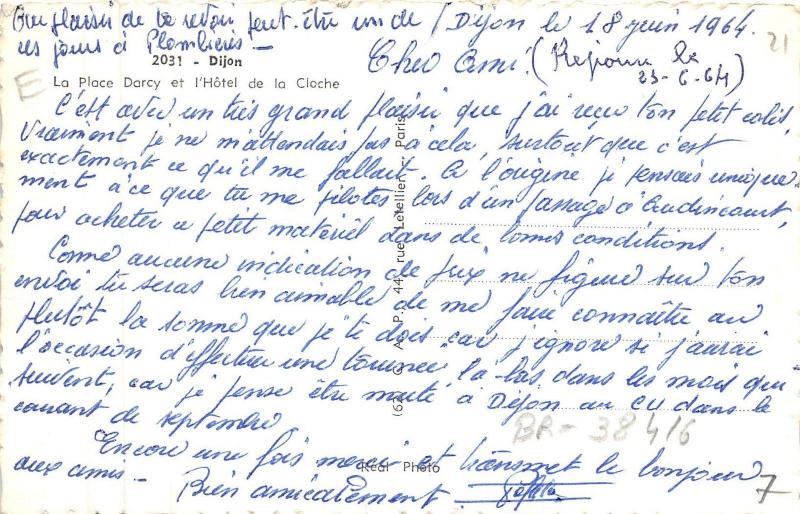 Dijon le 18 juin 1964.
Cher Ami. (Répondu le
23-6-64)
C'est avec un très grand plaisir que j'ai reçu ton petit colis,
vraiment je ne m'attendais pas à cela, surtout que c'est
exactement ce qu'il me fallait. A l'origine je pensais unique-
ment à ce que tu me pilotes lors d'un passage à Audincourt,
pour acheter ce petit matériel dans de bonnes conditions.
Comme aucune indication de prix ne figure sur ton
envoi tu seras bien aimable de me faire connaître au
plutôt la somme que je te dois, car j'ignore si j'aurai
l'occasion d'effectuer une tournée là-bas dans les mois qui
suivent, car je pense être muté à Dijon au CU dans le
courant de septembre
Encore une fois merci et transmet le bonjour
aux amis-
Bien amicalement.
Au plaisir de te revoir peut-être un de
ces jours à Plombières-
2031 - Dijon
La Place Darcy et l'Hôtel de la Cloche
(62) C. A. P. 44, rue Letellier - Paris
Réal Photo
E
21
BR-38416
7